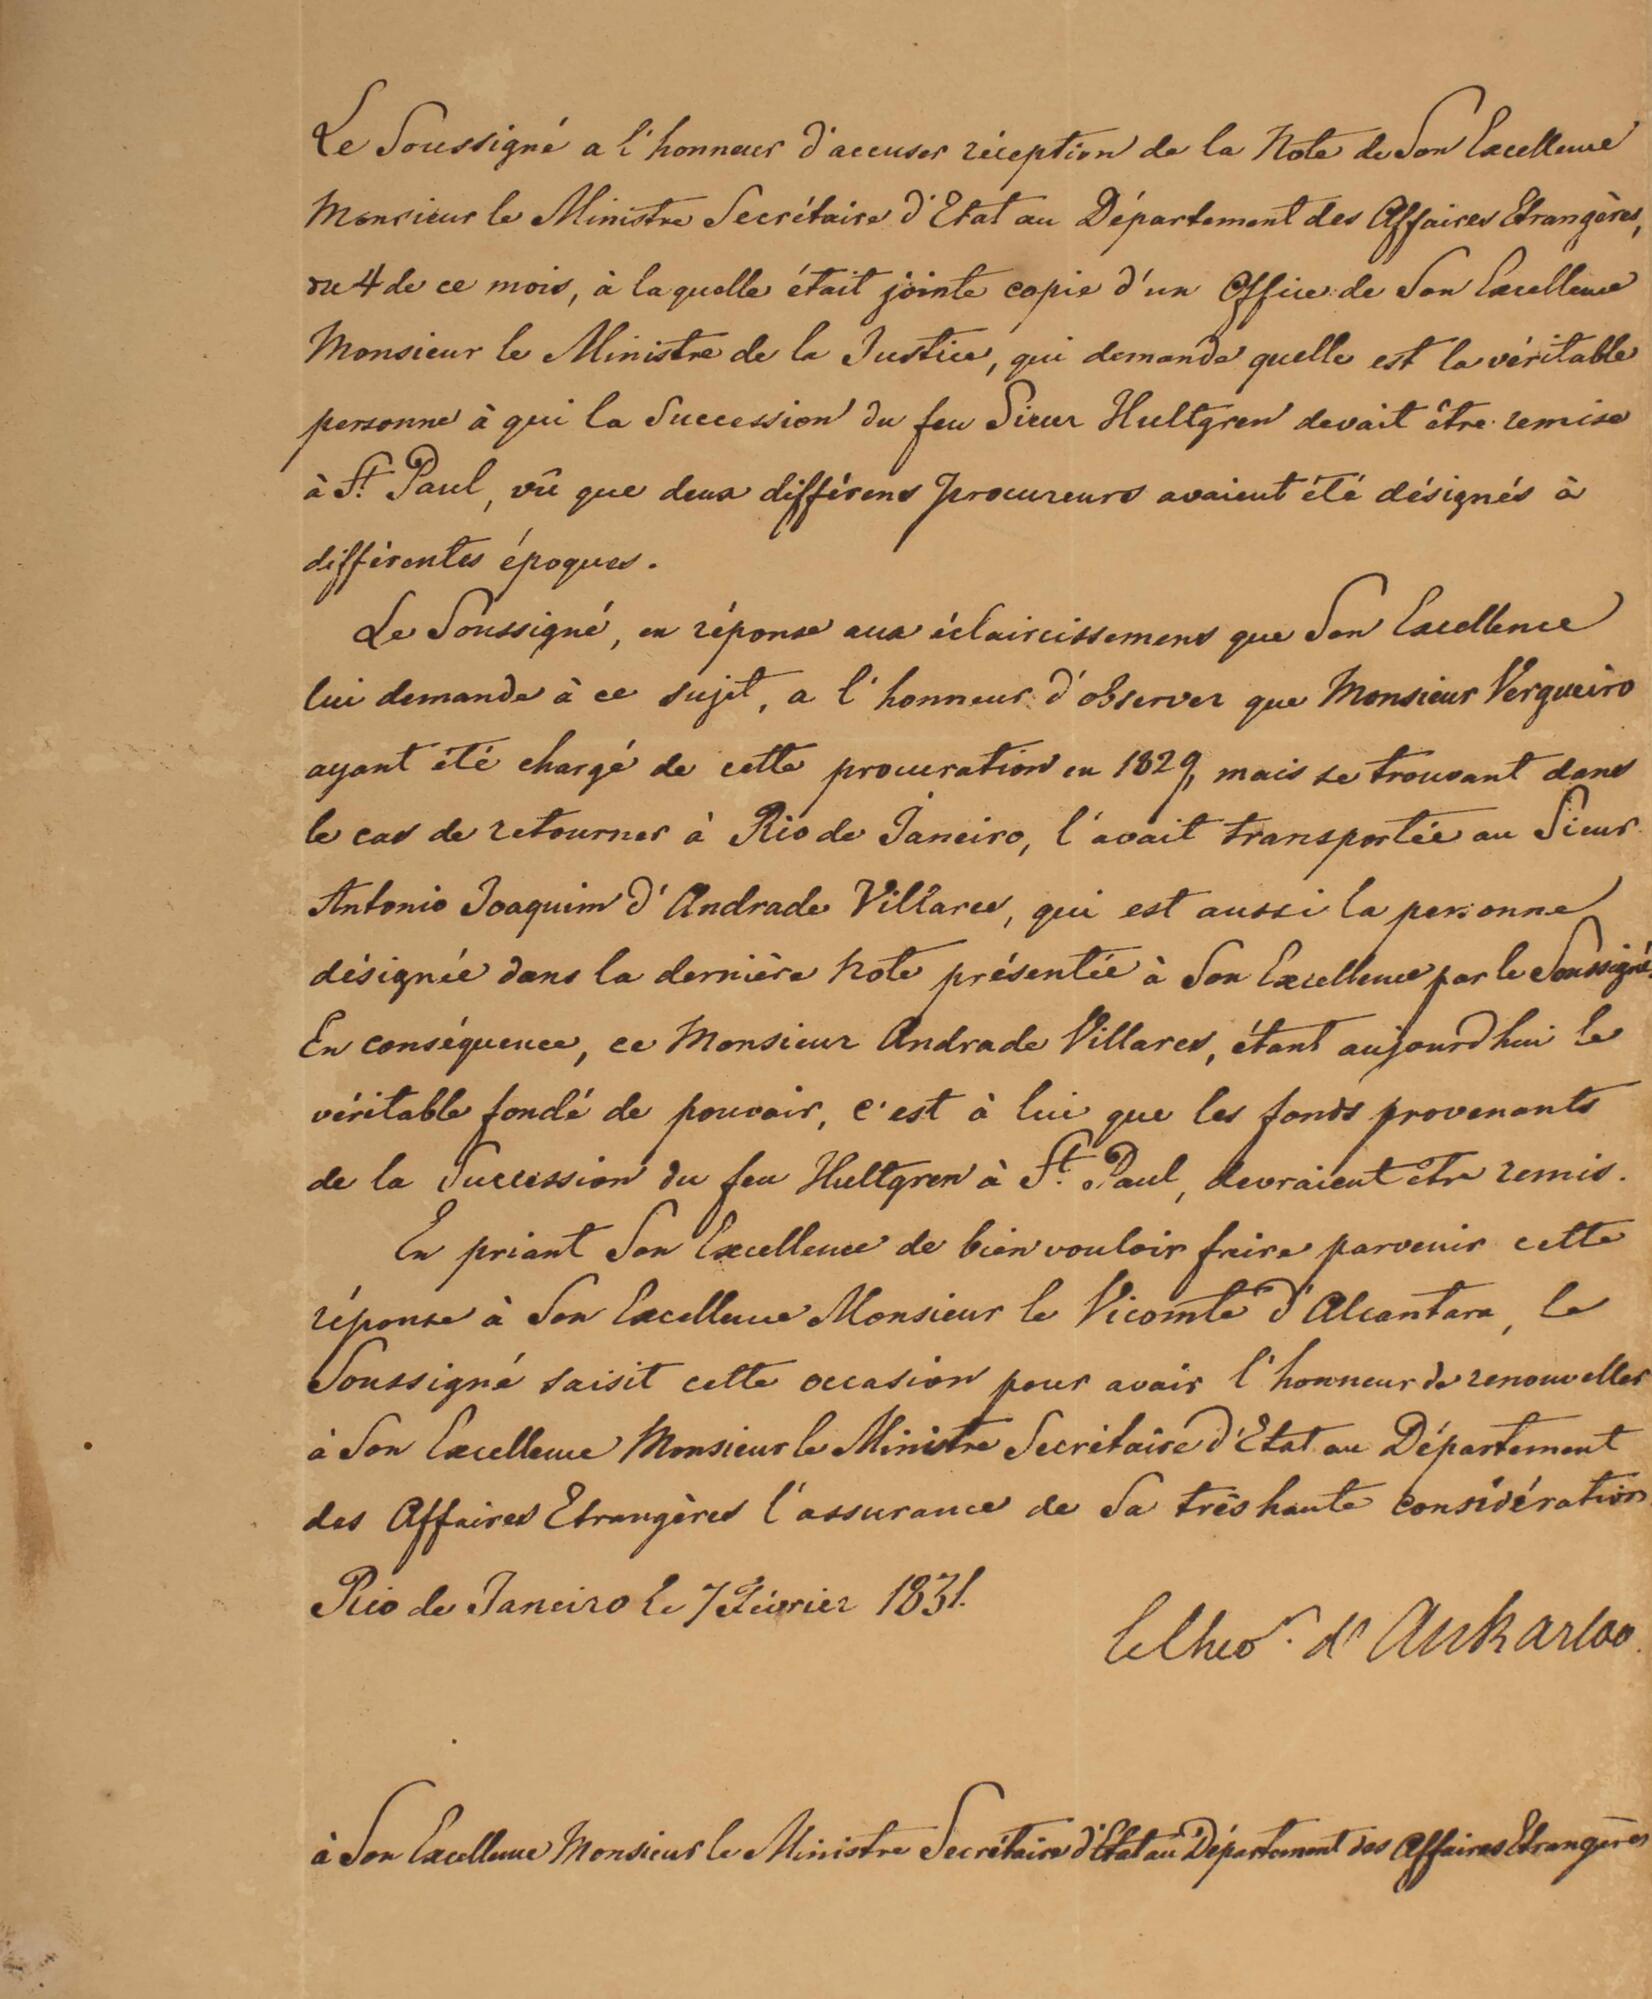 Le Soussigné a l'honneur d'accuser réception de la Note de Son Excellence
Monsieur le Ministre Secrétaire d'Etat au Département des Affaires Etrangères,
du 4 de ce mois, à laquelle était jointe copie d'un Office de Son Excellence
Monsieur le Ministre de la Justice, qui demande quelle est la véritable
personne à qui la Succession du feu Sieur Hultgren devait être remise
à St. Paul, vû que deux différens Procureurs avaient été désignés à
différentes époques.
Le Soussigné, en réponse aux éclaircissemens que Son Excellence
lui demande à ce sujet, a l'honneur d'observer que Monsieur Vergueiro
ayant été chargé de cette procuration en 1829, mais se trouvant dans
le cas de retourner à Rio de Janeiro, l'avait transportée au Sieur
Antonio Joaquim d'Andrade Villares, qui est aussi la personne
désignée dans la dernière Note présentée à Son Excellence par le Soussigné.
En conséquence, ce Monsieur Andrade Villares, étant aujourd'hui le
véritable fondé de pouvoir, c'est à lui que les fonds provenants
de la Succession du feu Hultgren à St. Paul, devraient être remis.
En priant Son Excellence de bien vouloir faire parvenir cette
réponse à Son Excellence Monsieur le Vicomte d'Alcantara, le
Soussigné saisit cette occasion pour avoir l'honneur de renouveller
à Son Excellence Monsieur le Ministre Secrétaire d'Etat au Département
des Affaires Etrangères l'assurance de Sa très haute considération
Rio de Janeiro le 7 Février 1831.
le Chevr. d'Ankarloo.
à Son Excellence Monsieur le Ministre Secrétaire d'Etat au Département des Affaires Etrangères